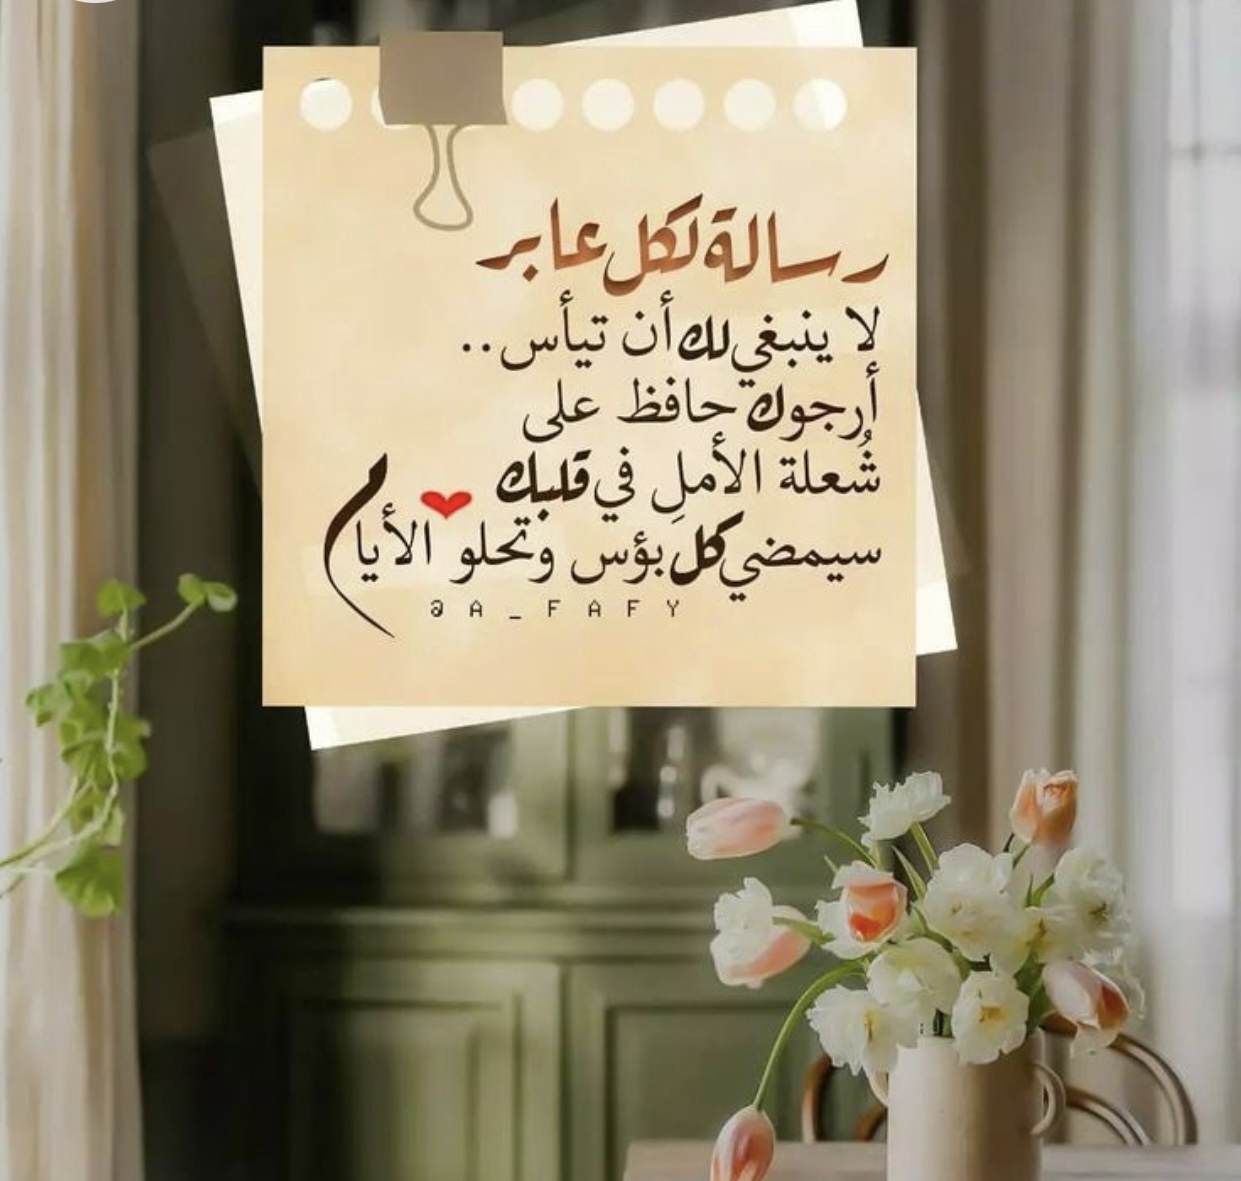 رسالة لكل عابر
لا ينبغي لك أن تيأس..
أرجوك حافظ على
شُعلة الأملِ في قلبك
سيمضي كل بؤس وتحلو الأيام
@A_FAFY